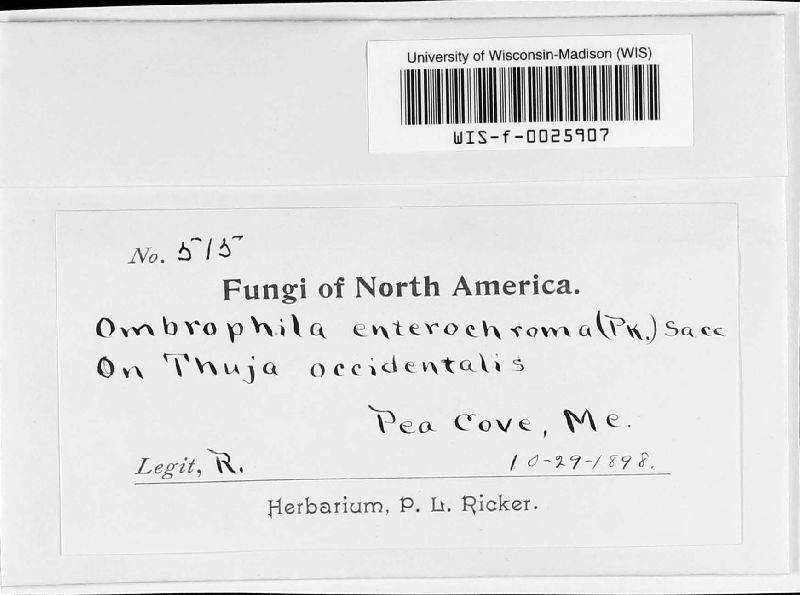 University of Wisconsin-Madison (WIS)
WIS-f-0025907
No. 515
Fungi of North America.
Ombrophila enterochroma (Pk.) Sacc
On Thuja occidentalis
Pea Cove, Me.
Legit, R. 10-29-1898.
Herbarium, P. L. Ricker.